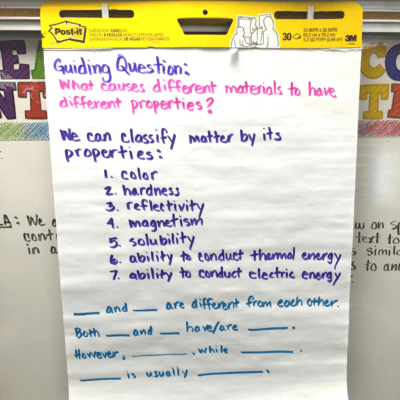 Post-it
30
3M
EA
NT
CO
TI
Guiding Question:
What causes different materials to have
different properties?
We can classify matter by its
properties:
1. color
2. hardness
3. reflectivity
4. magnetism
5. solubility
6. ability to conduct thermal energy
7. ability to conduct electric energy
___ and ___ are different from each other.
Both ___ and ___ have/are ___.
However, ___, while ___.
___ is usually ___.
A: We
cont
in a
w on
text to
simila
s to an